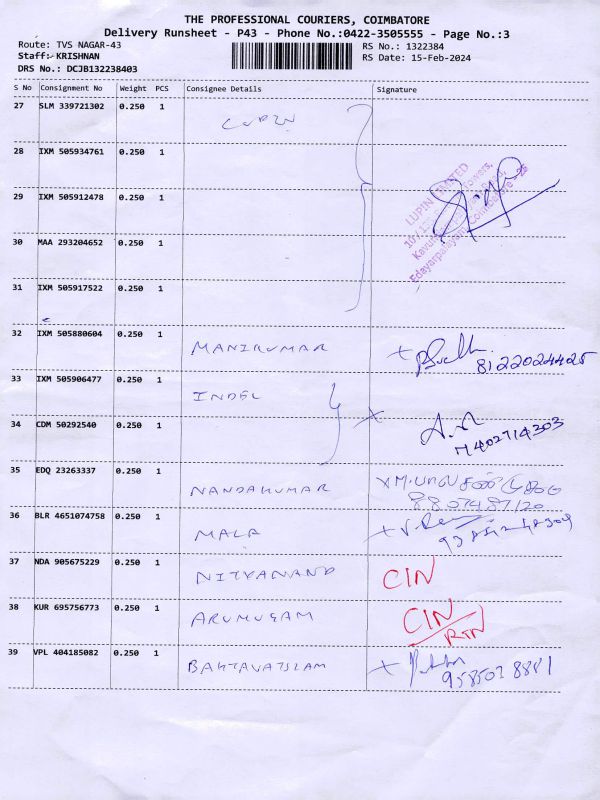 THE PROFESSIONAL COURIERS, COIMBATORE
Delivery Runsheet - P43 - Phone No.:0422-3505555 - Page No.:3
Route: TVS NAGAR-43
RS No.: 1322384
Staff: KRISHNAN
RS Date: 15-Feb-2024
DRS No.: DCJB132238403
S No Consignment No Weight PCS Consignee Details Signature
27 SLM 339721302 0.250 1 LUPIN
28 IXM 505934761 0.250 1
LUPIN LIMITED
29 IXM 505912478 0.250 1
30 MAA 293204652 0.250 1
31 IXM 505917522 0.250 1
32 IXM 505880604 0.250 1 MANIKUMAR 8122024425
33 IXM 505906477 0.250 1 INDEL
34 CDM 50292540 0.250 1 7402714303
35 EDQ 23263337 0.250 1 NANDAKUMAR
8807487120
36 BLR 4651074758 0.250 1 MALA
37 NDA 905675229 0.250 1 NITYANAND CIN
38 KUR 695756773 0.250 1 ARUMUGAM CIN
RTN
39 VPL 404185082 0.250 1 BAKTAVATSLAM